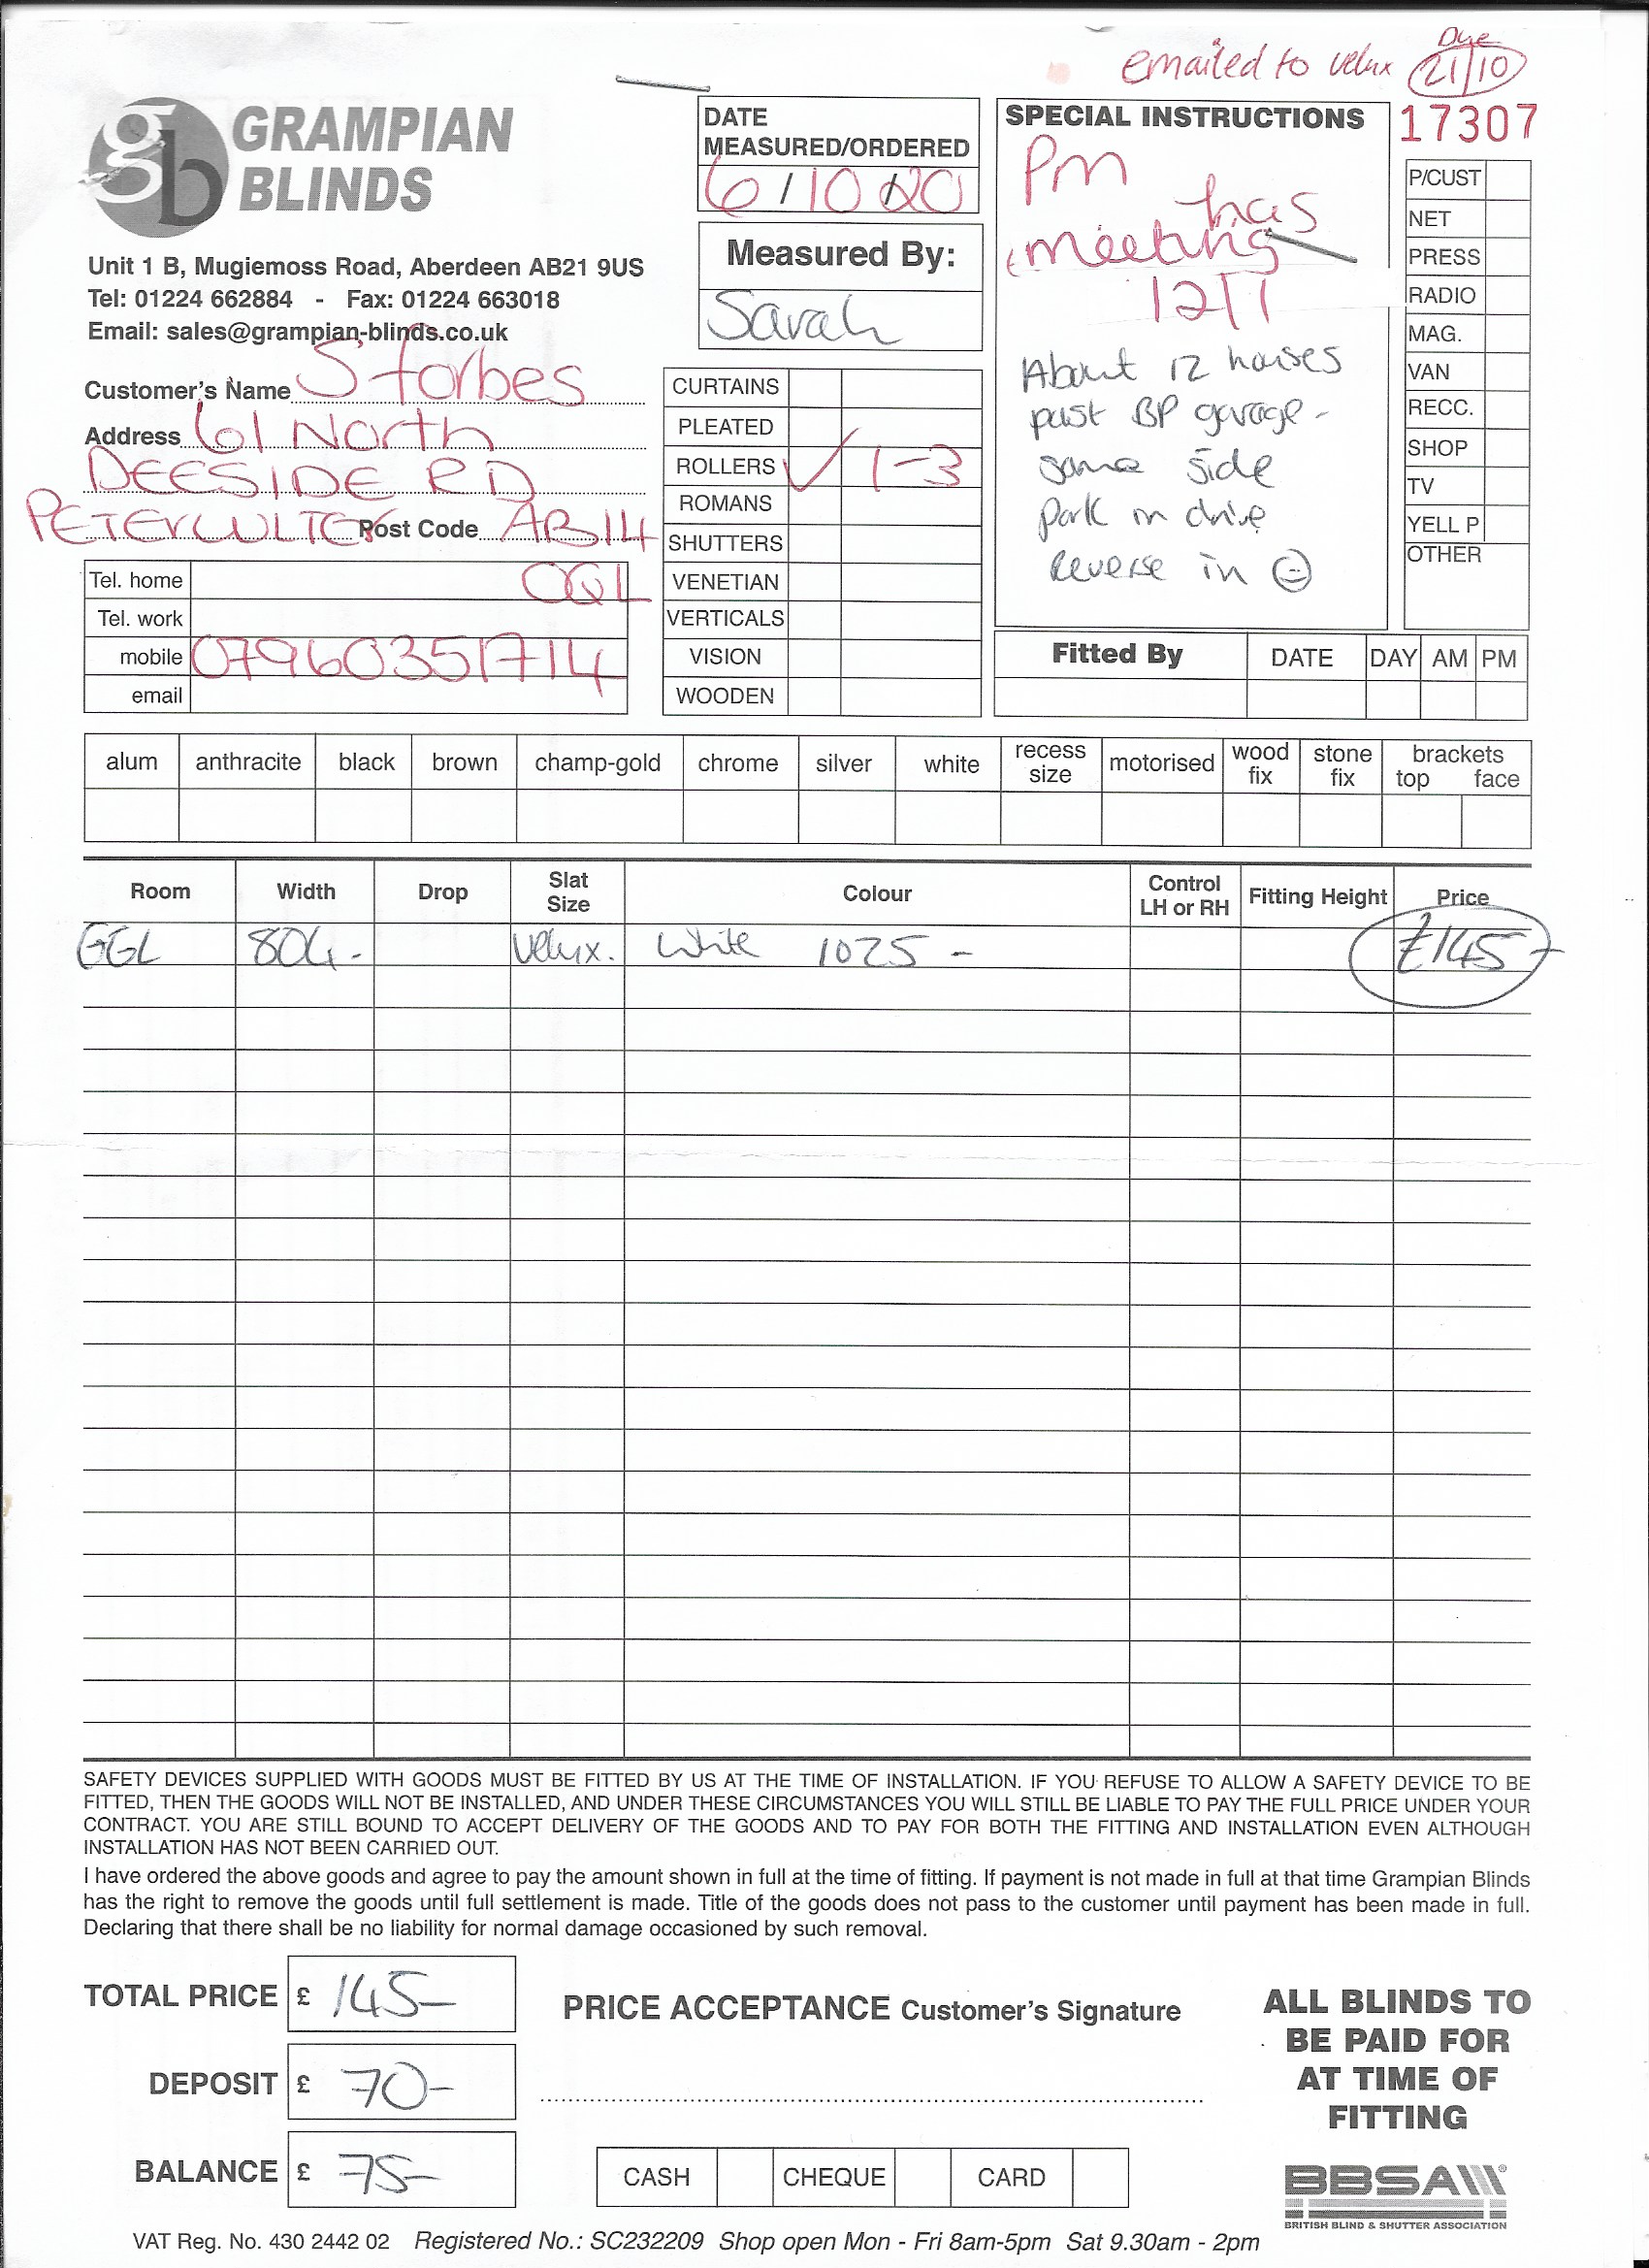 emailed to velux Due 21/10
17307
gb GRAMPIAN
BLINDS
Unit 1 B, Mugiemoss Road, Aberdeen AB21 9US
Tel: 01224 662884 - Fax: 01224 663018
Email: sales@grampian-blinds.co.uk
Customer's Name S Forbes
Address 61 North
DEESIDE RD
PETERCULTER Post Code AB14
Tel. home 0QL
Tel. work
mobile 07960351714
email
DATE
MEASURED/ORDERED
6/10/20
Measured By:
Sarah
CURTAINS
PLEATED
ROLLERS ✓ 1-3
ROMANS
SHUTTERS
VENETIAN
VERTICALS
VISION
WOODEN
SPECIAL INSTRUCTIONS
Pm
has
meeting
12/1
About 12 houses
past BP garage -
same side
park in drive
reverse in ☺
P/CUST
NET
PRESS
RADIO
MAG.
VAN
RECC.
SHOP
TV
YELL P
OTHER
Fitted By DATE DAY AM PM
alum anthracite black brown champ-gold chrome silver white recess size motorised wood fix stone fix brackets top face
Room Width Drop Slat Size Colour Control LH or RH Fitting Height Price
GGL 804- Velux. White 1025 - £145-
SAFETY DEVICES SUPPLIED WITH GOODS MUST BE FITTED BY US AT THE TIME OF INSTALLATION. IF YOU REFUSE TO ALLOW A SAFETY DEVICE TO BE
FITTED, THEN THE GOODS WILL NOT BE INSTALLED, AND UNDER THESE CIRCUMSTANCES YOU WILL STILL BE LIABLE TO PAY THE FULL PRICE UNDER YOUR
CONTRACT. YOU ARE STILL BOUND TO ACCEPT DELIVERY OF THE GOODS AND TO PAY FOR BOTH THE FITTING AND INSTALLATION EVEN ALTHOUGH
INSTALLATION HAS NOT BEEN CARRIED OUT.
I have ordered the above goods and agree to pay the amount shown in full at the time of fitting. If payment is not made in full at that time Grampian Blinds
has the right to remove the goods until full settlement is made. Title of the goods does not pass to the customer until payment has been made in full.
Declaring that there shall be no liability for normal damage occasioned by such removal.
TOTAL PRICE £ 145-
DEPOSIT £ 70-
BALANCE £ 75-
PRICE ACCEPTANCE Customer's Signature
CASH CHEQUE CARD
ALL BLINDS TO
BE PAID FOR
AT TIME OF
FITTING
BBSA
BRITISH BLIND & SHUTTER ASSOCIATION
VAT Reg. No. 430 2442 02 Registered No.: SC232209 Shop open Mon - Fri 8am-5pm Sat 9.30am - 2pm